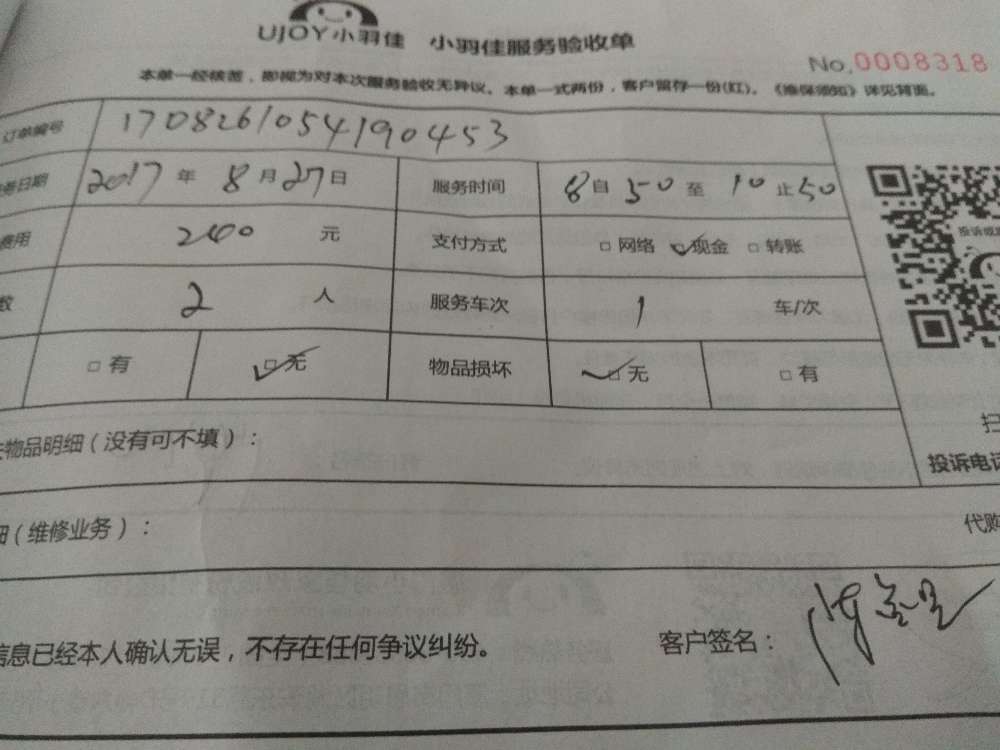 UJOY小羽佳 小羽佳服务验收单
No.0008318
本单一经核签，即视为对本次服务验收无异议。本单一式两份，客户留存一份(红)。《维保须知》详见背面。
订单编号 1708261054190453
务日期 2017 年 8 月 27 日 服务时间 8 自 50 至 10 止 50
费用 200 元 支付方式 □ 网络 ☑ 现金 □ 转账
数 2 人 服务车次 1 车/次
□ 有 ☑ 无 物品损坏 ☑ 无 □ 有
投诉或
物品明细（没有可不填）：
扫
投诉电话
细（维修业务）：
代购
信息已经本人确认无误，不存在任何争议纠纷。 客户签名：